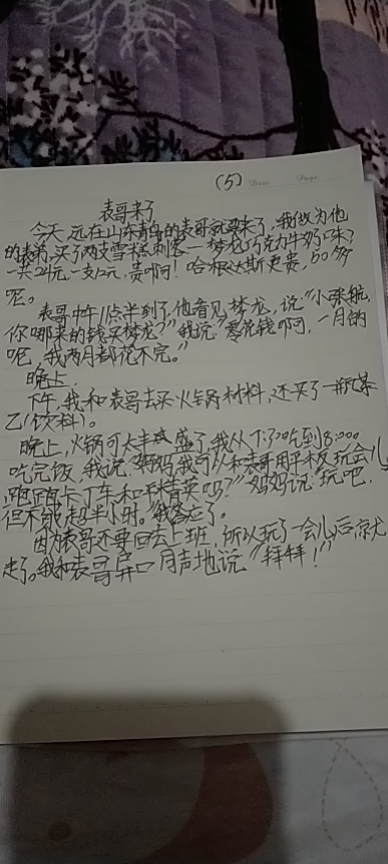 (5) Date Page
表哥来了
今天,远在山东青岛的表哥就要来了,我做为他
的表弟,买了两支雪糕刺客—梦龙巧克力牛奶味?
一共24元,一支12元,贵啊!哈根达斯更贵,50多
呢。
表哥中午1点半到了,他看见梦龙,说“小张航,
你哪来的钱买梦龙?”我说“零花钱啊,一月的
呢,我两月都花不完。”
晚上,
下午,我和表哥去买火锅材料,还买了一瓶茶
乙(饮料)。
晚上,火锅可太丰盛了,我从7:30吃到8:00
吃完饭,我说“妈妈我可以和表哥用平板玩会儿
跑跑卡丁车和和平精英吗?”妈妈说“玩吧,
但不能超半小时。”我答应了。
因为表哥还要回去上班,所以玩了一会儿后,就
走了。我和表哥异口同声地说“拜拜!”